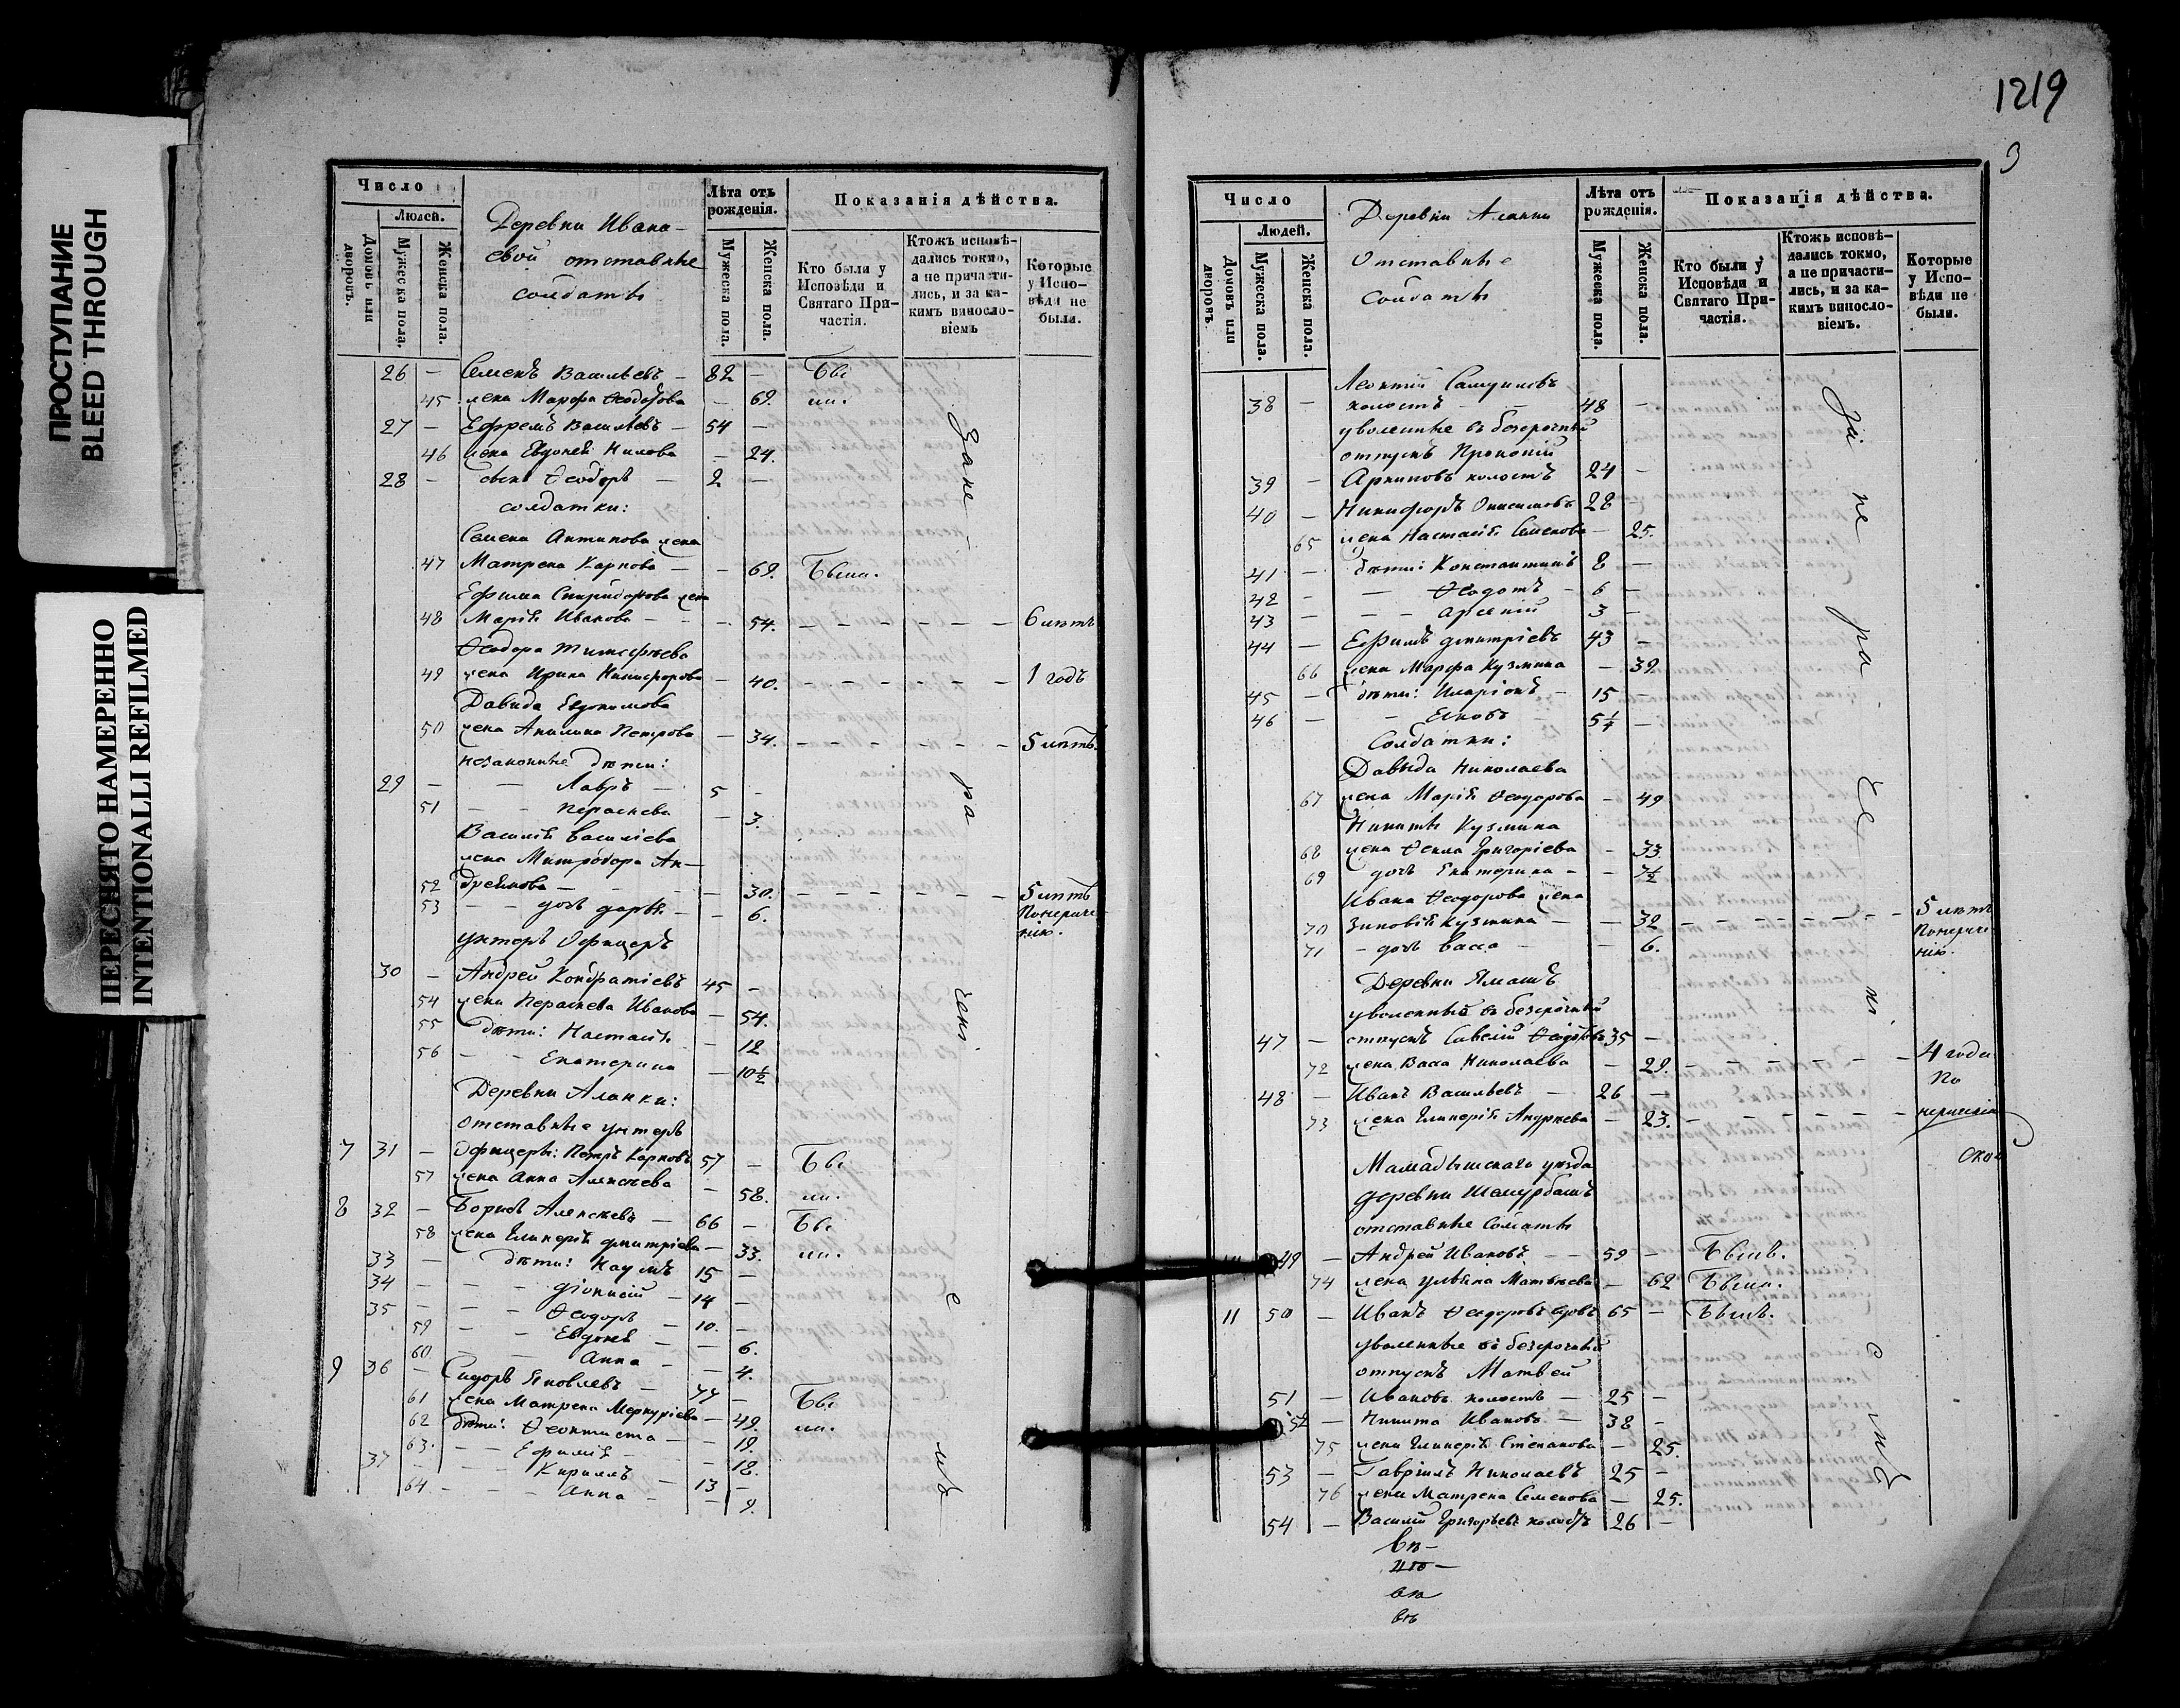 ПРОСТУПАНИЕ
BLEED THROUGH
ПЕРЕСНЯТО НАМЕРЕННО
INTENTIONALLI REFILMED
Число
Людей.
Домовъ или дворовъ.
Мужеска пола.
Женска пола.
Деревни Ивана-
евой отставные
солдаты
Лѣта отъ рожденія.
Мужеска пола.
Женска пола.
Показанія дѣйства.
Кто были у Исповѣди и Святаго При-частія.
Ктожъ исповѣ-дались токмо, а не причасти-лись, и за ка-кимъ винословіемъ
Которые у Испо-вѣди не были.
26 - Семенъ Васильевъ - 82 - Бы
45 жена Марфа Ѳеодорова - 69. ли.
27 - Ефремъ Васильевъ - 54 -
46 жена Евдокея Нилова - 24.
28 - сынъ Ѳеодоръ - 2 -
солдатки:
Семена Антипова жена
47 Матрена Карпова - - 69. Была.
Ефима Спиридонова жена
48 Марія Иванова - - 54. - - - - - - 6 лѣтъ
Ѳеодора Тимофѣева
49 жена Ирина Никифорова - 40. - - - - - - 1 годъ
Давида Евдокимова
50 жена Акилина Петрова - 34. - - - - - - 5 лѣтъ.
незаконные дѣти:
29 - - Лавръ - 5 -
51 - - Пераскева - 3.
Василія Василіева
жена Митродора Ан-
52 дреянова - - - - 30. - - - - - - 5 лѣтъ
53 - - дочь Дарья - - 6. По нераче
унтеръ Офицеръ нію.
30 - Андрей Кондратіевъ 45 -
54 жена Пераскева Иванова - 54.
55 дѣти: Настасія - 12
56 - - Екатерина - 10½
Деревни Аланки:
отставные унтеръ
7 31 - Офицеры: Петръ Карповъ 57 - Бы
57 жена Анна Алексѣева - 58. ли.
8 32 - Борисъ Алексѣевъ - 66 - Бы
58 жена Гликерія Дмитріева - 33. ли.
33 - дѣти: Наумъ 15 -
34 - - - Діонисій - 14 -
35 - - - Ѳеодоръ - 10. -
59 - - Евдокея - - 6.
60 - - Анна - - 4.
9 36 - Сидоръ Яковлевъ - 44 - Бы
61 жена Матрена Меркуріева - 49. ли.
62 дѣти: Ѳеоктиста - - 19.
63. - - Ефимія - - 18.
37 - - - Кириллъ - 13 -
64 - - - Анна - - 9.
За не - ра чені е мъ
1219
3
Число
Людей.
Домовъ или дворовъ.
Мужеска пола.
Женска пола.
Деревни Аланки
Отставные
Солдаты
Лѣта отъ рожденія.
Мужеска пола.
Женска пола.
Показанія дѣйства.
Кто были у Исповѣди и Святаго При-частія.
Ктожъ исповѣ-дались токмо, а не причасти-лись, и за ка-кимъ винословіемъ.
Которые у Испо-вѣди не были.
Леонтій Самуиловъ
38 - холостъ - - 48 -
уволенные въ безсрочный
отпускъ Прокопій
39 - Архиповъ холостъ 24 -
40 - Никифоръ Онисимовъ 28 -
65 жена Настасія Семенова - 25.
41 - дѣти: Константинъ 8 -
42 - - Ѳеодотъ - 6 -
43 - - - Арсеній 3 -
44 - Ефимъ Дмитріевъ 43 -
66 жена Марфа Кузмина - 39.
45 - дѣти: Иларіонъ - 15 -
46 - - Яковъ - 5¼ -
Солдатки:
Давыда Николаева
67 жена Марія Ѳеодорова - 49
Никиты Кузмина
68 жена Ѳекла Григоріева - 33
69 дочь Екатерина - - 7½
Ивана Ѳеодорова жена
70 Зиновія Кузмина - - 32 - - - - - - 5 лѣтъ
71 - дочь Васса - - 6. По нераче
нію.
Деревни Ямашъ
уволенный въ безсрочный
47 - отпускъ Савелій Ѳеодоровъ 35 -
72 жена Васса Николаева - 29. - - - - - - 4 года
48 - Иванъ Васильевъ - 26 - По
73 жена Гликерія Андреева - 23. - - - - - - нераченію
Мамадышскаго уѣзда
деревни Шемурбашъ
отставные Солдаты
49 - Андрей Ивановъ - - 59 - Былъ.
74 жена Ульяна Матвѣева - 62 Была.
11 50 - Иванъ Ѳеодоровъ вдовъ 65 - Былъ.
уволенные въ безсрочный
отпускъ Матвей
51 - Ивановъ холостъ - 25 -
52 - Никита Ивановъ - 38 -
75 жена Гликерія Степанова - 25.
53 - Гавріилъ Николаевъ 25 -
76 жена Матрена Семенова - 25.
54 - Василій Григорьевъ холостъ 26 -
За не ра - че ні е мъ